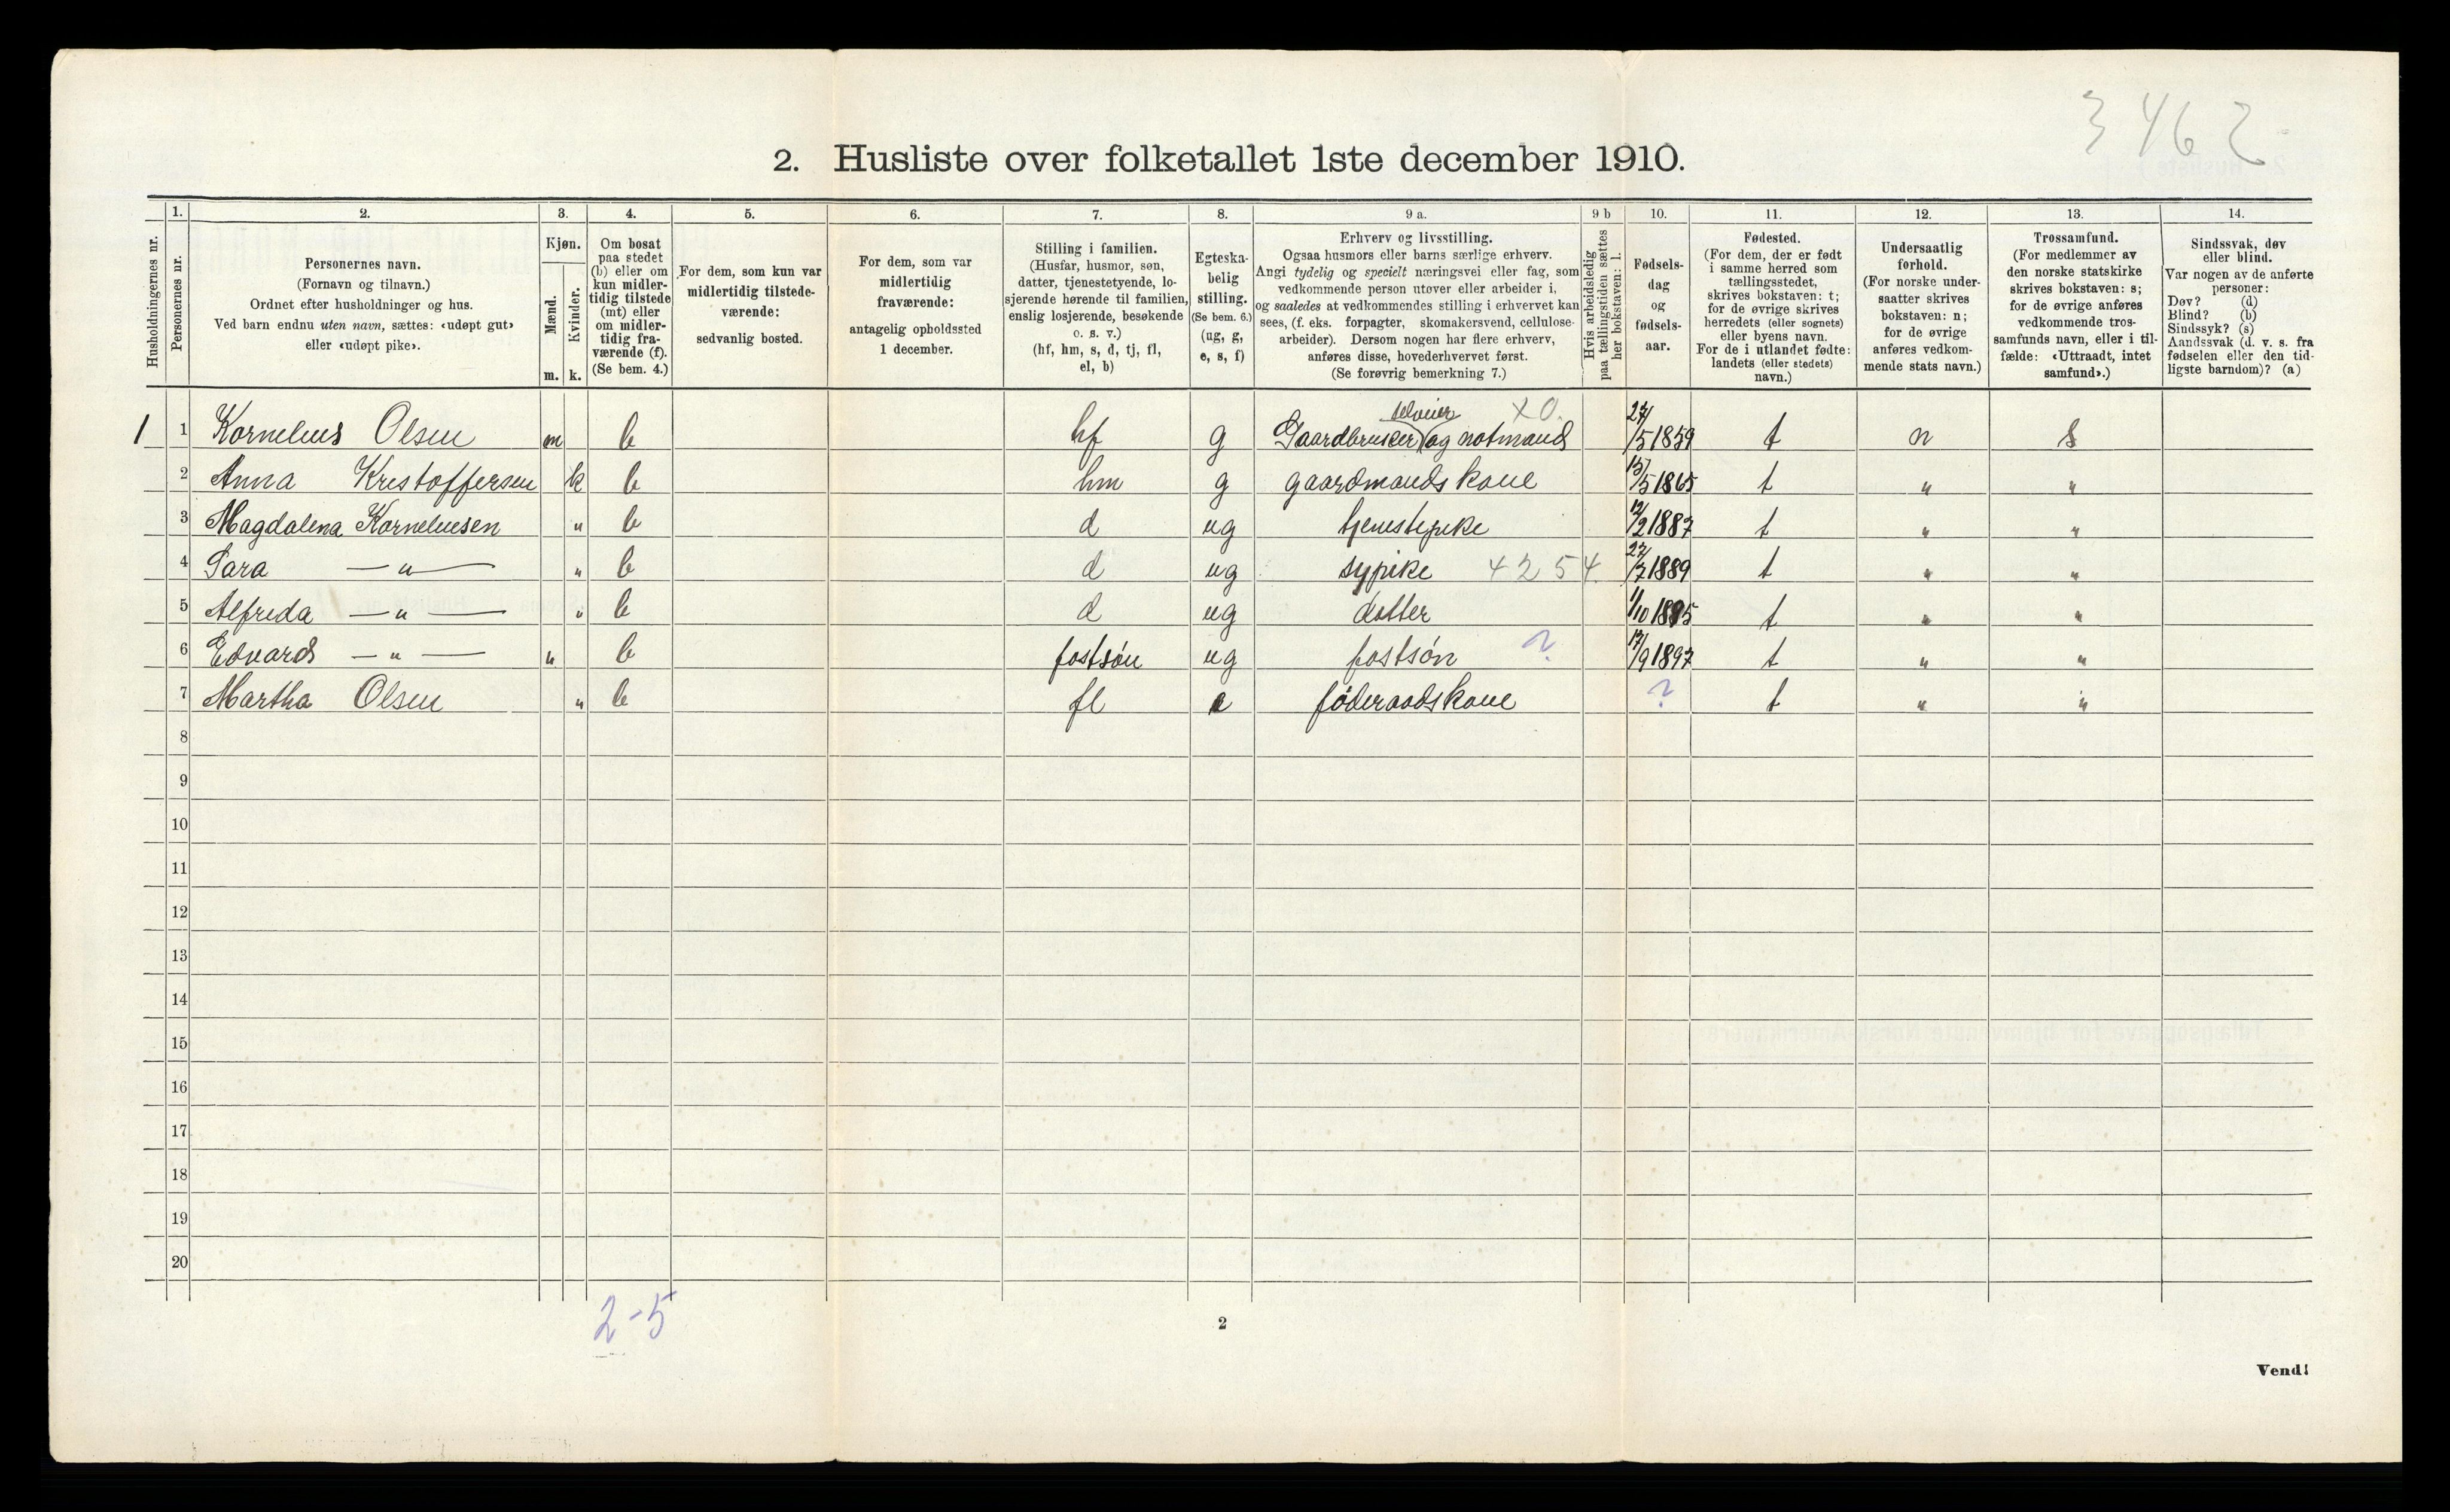 3462
2. Husliste over folketallet 1ste december 1910.
Husholdningernes nr.
1. Personernes nr.
2. Personernes navn. (Fornavn og tilnavn.) Ordnet efter husholdninger og hus. Ved barn endnu uten navn, sættes: «udøpt gut» eller «udøpt pike».
3. Kjøn. Mænd. m. Kvinder. k.
4. Om bosat paa stedet (b) eller om kun midlertidig tilstede (mt) eller om midlertidig fraværende (f). (Se bem. 4.)
5. For dem, som kun var midlertidig tilstedeværende: sedvanlig bosted.
6. For dem, som var midlertidig fraværende: antagelig opholdssted 1 december.
7. Stilling i familien. (Husfar, husmor, søn, datter, tjenestetyende, losjerende hørende til familien, enslig losjerende, besøkende o. s. v.) (hf, hm, s, d, tj, fl, el, b)
8. Egteskabelig stilling. (Se bem. 6.) (ug, g, e, s, f)
9 a. Erhverv og livsstilling. Ogsaa husmors eller barns særlige erhverv. Angi tydelig og specielt næringsvei eller fag, som vedkommende person utøver eller arbeider i, og saaledes at vedkommendes stilling i erhvervet kan sees, (f. eks. forpagter, skomakersvend, cellulosearbeider). Dersom nogen har flere erhverv, anføres disse, hovederhvervet først. (Se forøvrig bemerkning 7.)
9 b Hvis arbeidsledig paa tællingstiden sættes her bokstaven: l.
10. Fødselsdag og fødselsaar.
11. Fødested. (For dem, der er født i samme herred som tællingsstedet, skrives bokstaven: t; for de øvrige skrives herredets (eller sognets) eller byens navn. For de i utlandet fødte: landets (eller stedets) navn.)
12. Undersaatlig forhold. (For norske undersaatter skrives bokstaven: n; for de øvrige anføres vedkommende stats navn.)
13. Trossamfund. (For medlemmer av den norske statskirke skrives bokstaven: s; for de øvrige anføres vedkommende trossamfunds navn, eller i tilfælde: «Uttraadt, intet samfund».)
14. Sindssvak, døv eller blind. Var nogen av de anførte personer: Døv? (d) Blind? (b) Sindssyk? (s) Aandssvak (d. v. s. fra fødselen eller den tidligste barndom)? (a)
1 1 Kornelius Olsen m b hf g Gaardbruker selveier og notmand X0. 27/5 1859 t n s
2 Anna Kristoffersen k b hm g gaardmandskone 15/5 1865 t " "
3 Magdalena Korneliusen " b d ug tjenestepike 12/2 1887 t " "
4 Sara — " — " b d ug sypike 4254 27/7 1889 t " "
5 Alfreda — " — " b d ug datter 1/10 1895 t " "
6 Edvard — " — " b fostsøn ug fostsøn ? 17/9 1897 t " "
7 Martha Olsen " b fl e føderaadskone ? t " "
8
9
10
11
12
13
14
15
16
17
18
19
20
2-5
2
Vend!